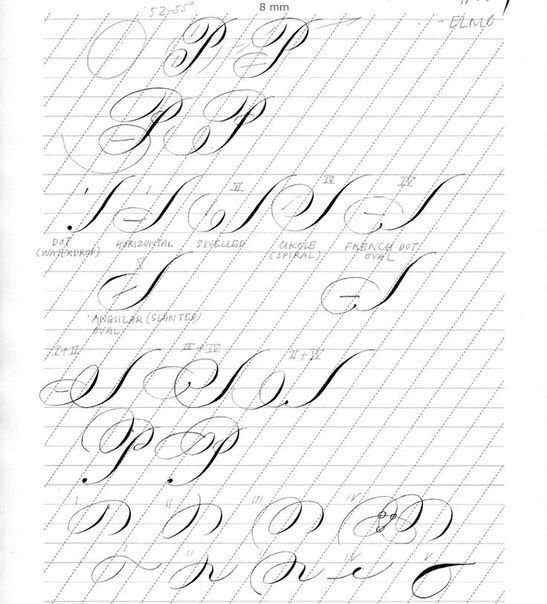 8 mm
52-55°
ELMO
P P
P P
I II IV IV
DOT HORIZONTAL SWELLED CIRCLE FRENCH DOT
(WATERDROP) (SPIRAL) OVAL
V
ANGULAR (SLANTED)
OVAL
I+II III+IV II+IV
P P
I II III IV
II III IV V